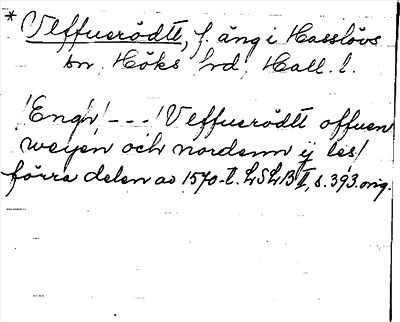 * Ulffuerödtt, f. äng i Hasslövs
sn, Höks hd, Hall. l.
/Engh/ --- / Vlffuerödtt offuen
weyen och nordenn ij les/
förra delen av 1570-t. LSLB I, s. 393. orig.